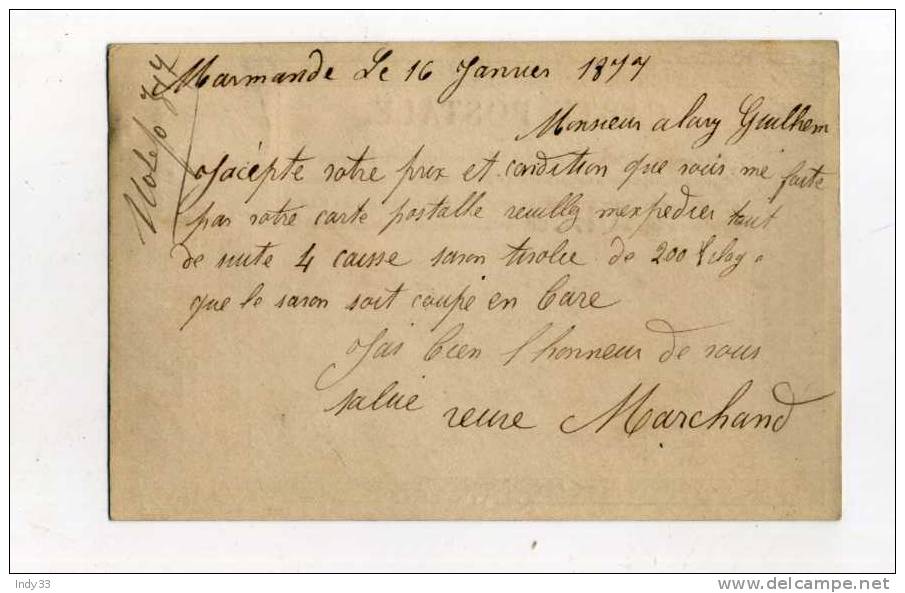 Marmande Le 16 Janvier 1877
Monsieur alary Guilhem
J'acepte votre prix et condition que vous me faite
par votre carte postalle veuillez mexpedier tout
de suite 4 caisse savon de 200 kilog
que le savon soit coupé en Care
J'ai bien l'honneur de vous
salué
veuve Marchand
Indy33
www.delcampe.net